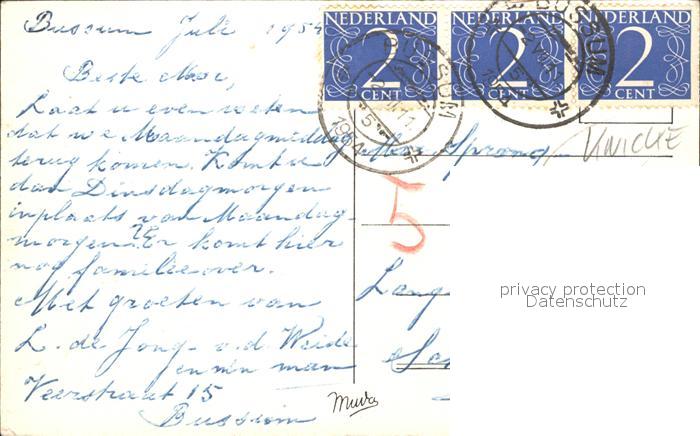 Bussum Juli 1954
Beste Mevr,
Laat u even weten
dat we Maandagmiddag
terug komen. Komt u
dan Dinsdagmorgen
inplaats van Maandag-
morgen. Er komt hier
nog familie over.
Met groeten van
L. de Jong - v. d. Weide
en mn man
Veerstraat 15
Bussum
NEDERLAND
2
CENT
NEDERLAND
2
CENT
NEDERLAND
2
CENT
BUSSUM
1954
BUSSUM
Mevr Sprong
KNICKE
5
Lang
privacy protection
Datenschutz
Muva